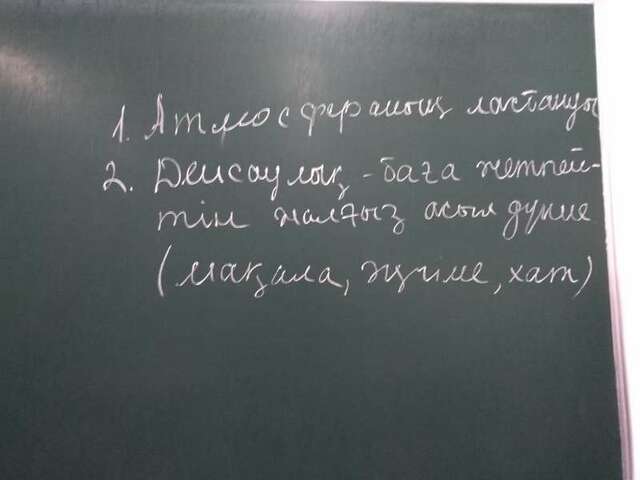 1. Атмосфераның ластануы
2. Денсаулық - баға жетпей-
тін жалғыз асыл дүние
(мақала, әңгіме, хат)